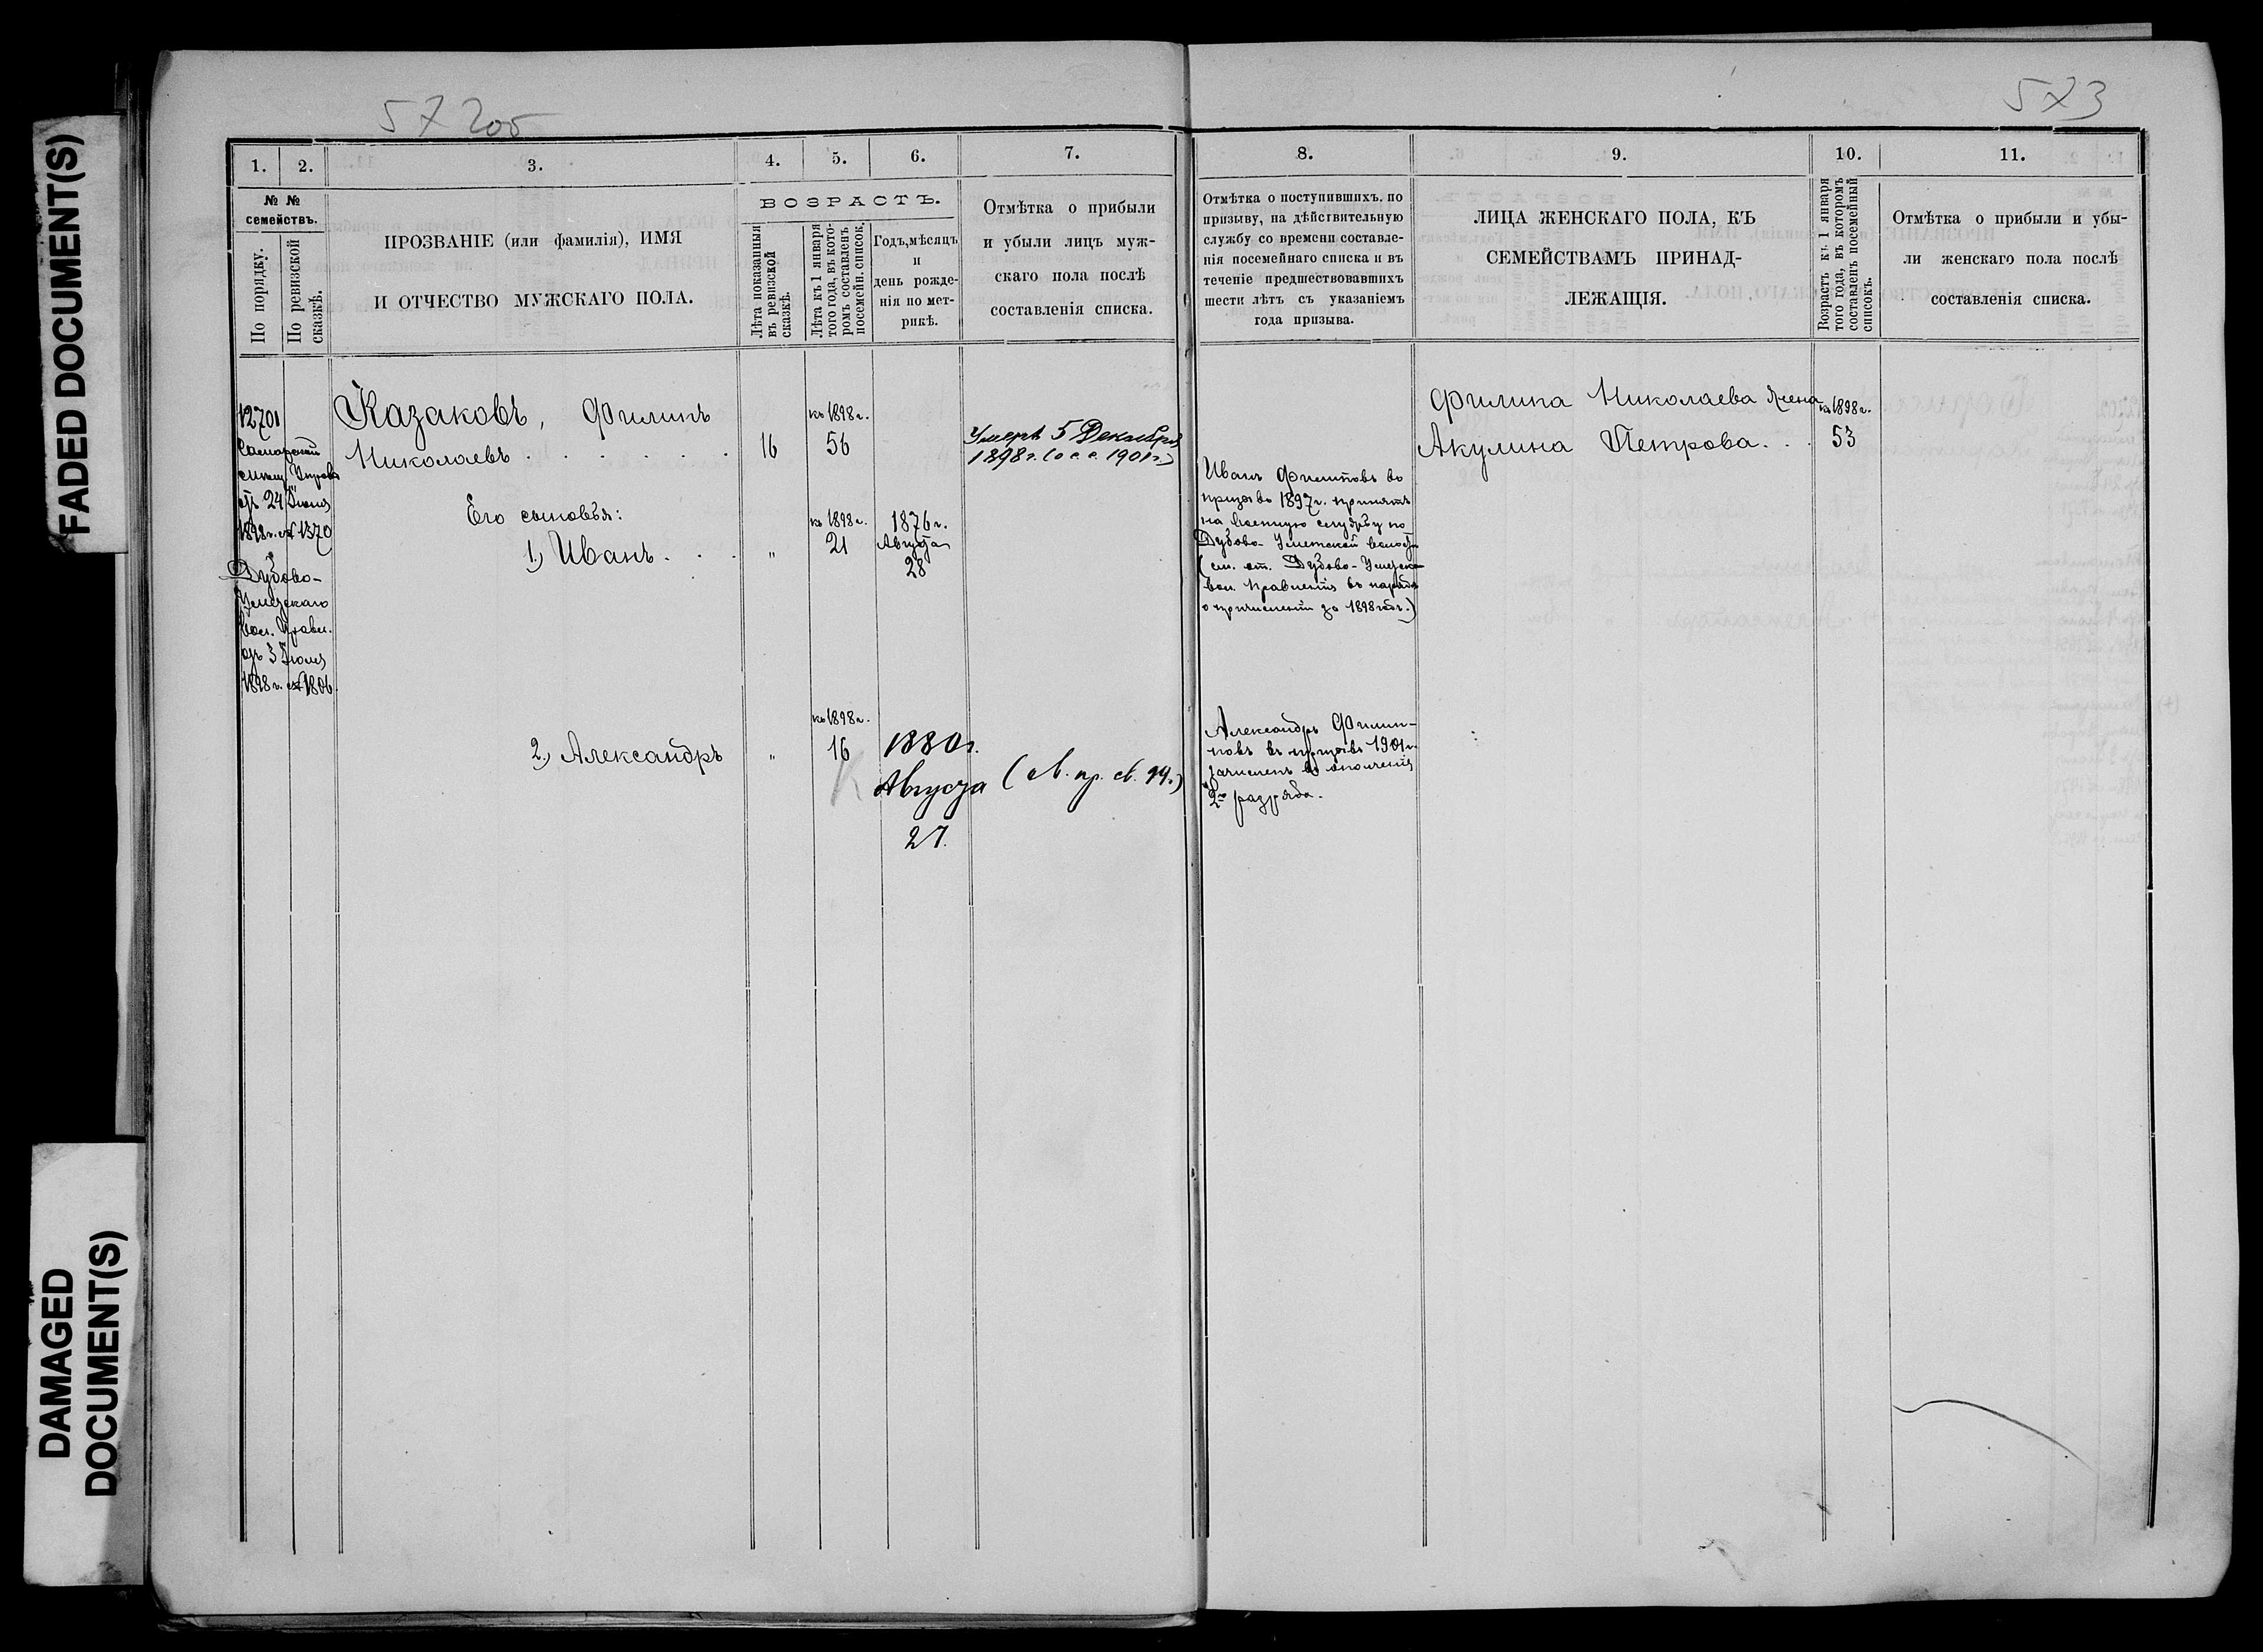 FADED DOCUMENT(S)
DAMAGED
DOCUMENT(S)
57 205
573
1.
2.
3.
4.
5.
6.
7.
№ №
семействъ.
По порядку.
По ревизской
сказкѣ.
ПРОЗВАНІЕ (или фамилія), ИМЯ
И ОТЧЕСТВО МУЖСКАГО ПОЛА.
ВОЗРАСТЪ.
Лѣта показанныя
въ ревизской
сказкѣ.
Лѣта къ 1 января
того года, въ кото-
ромъ составленъ
посемейн. список.
Годъ, мѣсяцъ
и
день рожде-
нія по мет-
рикѣ.
Отмѣтка о прибыли
и убыли лицъ муж-
скаго пола послѣ
составленія списка.
12701
Самарской
Управы
отъ 24 Іюня
1898 г. № 1370
Дубово-
Уметскаго
Вол. Правл.
отъ 3 Іюля
1898 г. № 1806.
Казаковъ, Филипъ
Николаевъ . . . . . .
16
къ 1898 г.
56
Умеръ 5 Декабря
1898 г. (о с. с. 1901 г.)
Его сыновья:
1.) Иванъ . . .
"
къ 1898 г.
21
1876 г.
Августа
28
2.) Александръ
"
къ 1898 г.
16
1880 г.
Августа
27.
8.
9.
10.
11.
Отмѣтка о поступившихъ. по
призыву, на дѣйствительную
службу со времени составле-
нія посемейнаго списка и въ
теченіе предшествовавшихъ
шести лѣтъ съ указаніемъ
года призыва.
ЛИЦА ЖЕНСКАГО ПОЛА, КЪ
СЕМЕЙСТВАМЪ ПРИНАД-
ЛЕЖАЩІЯ.
Возрастъ къ 1 января
того года, въ которомъ
составленъ посемейный
списокъ.
Отмѣтка о прибыли и убы-
ли женскаго пола послѣ
составленія списка.
Иванъ Филиповъ въ
призывъ 1897 г. принятъ
на военную службу по
Дубово-Уметской волости
(см. от. Дубово-Уметск
вол. правленія въ нарядѣ
о причисленіи за 1898 годъ.)
Александръ Филип-
повъ въ призывъ 1901 г.
зачисленъ въ ополченія
2го разряда.
Филипа Николаева жена
Акулина Петрова. . .
къ 1898 г.
53